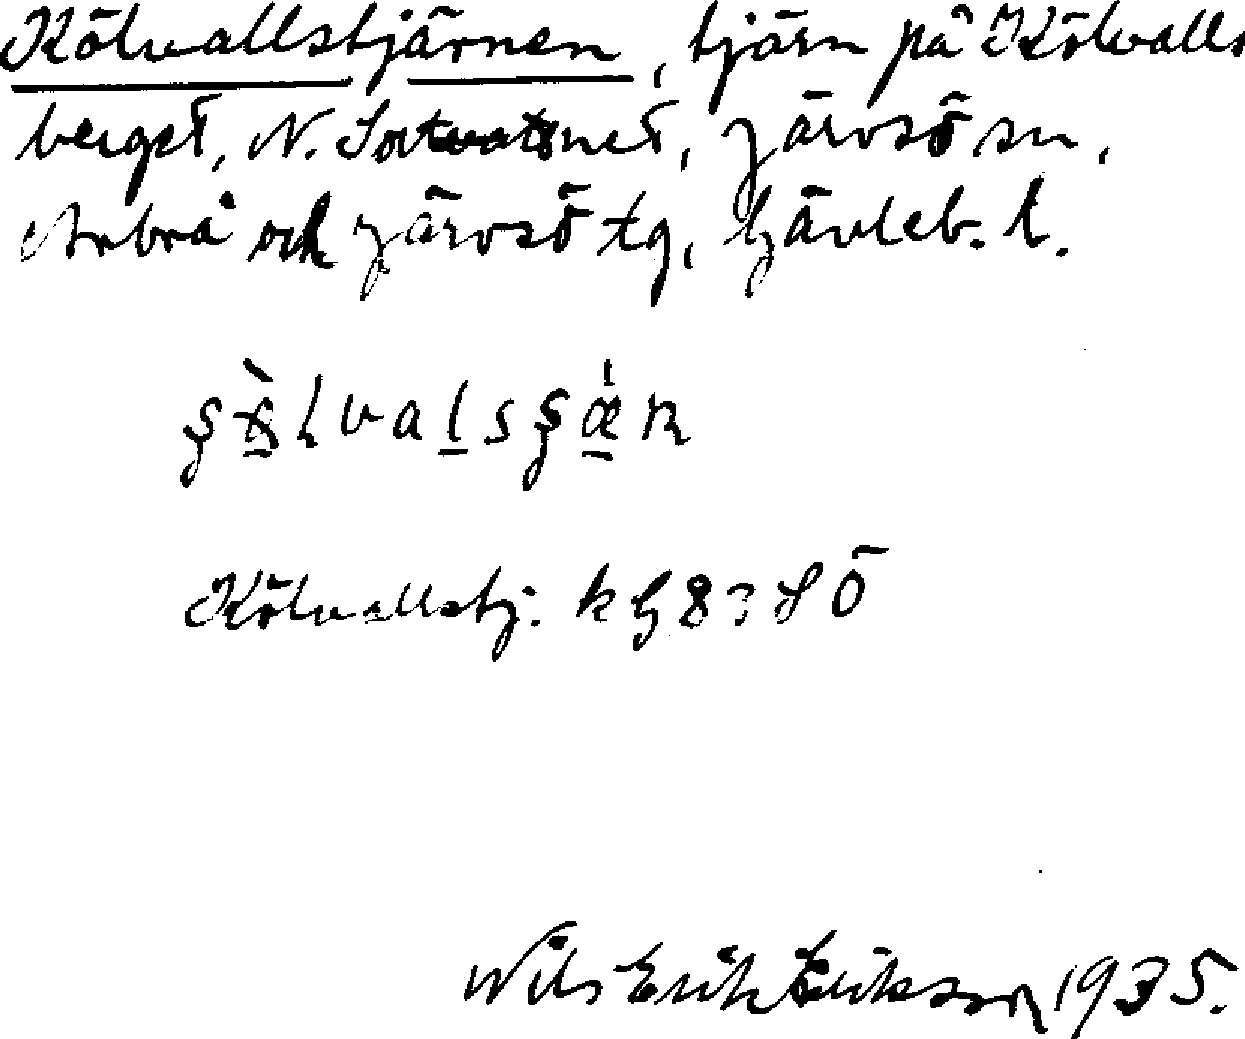 Kölvallstjärnen, tjärn på Kölvalls
berget, N. Sortvatsnet, Järvsö sn,
Arbrå och Järvsö tg, Gävleb. l.
Kölvallstj. kg 8 SÖ
Nils Erik Eriksson 1935.